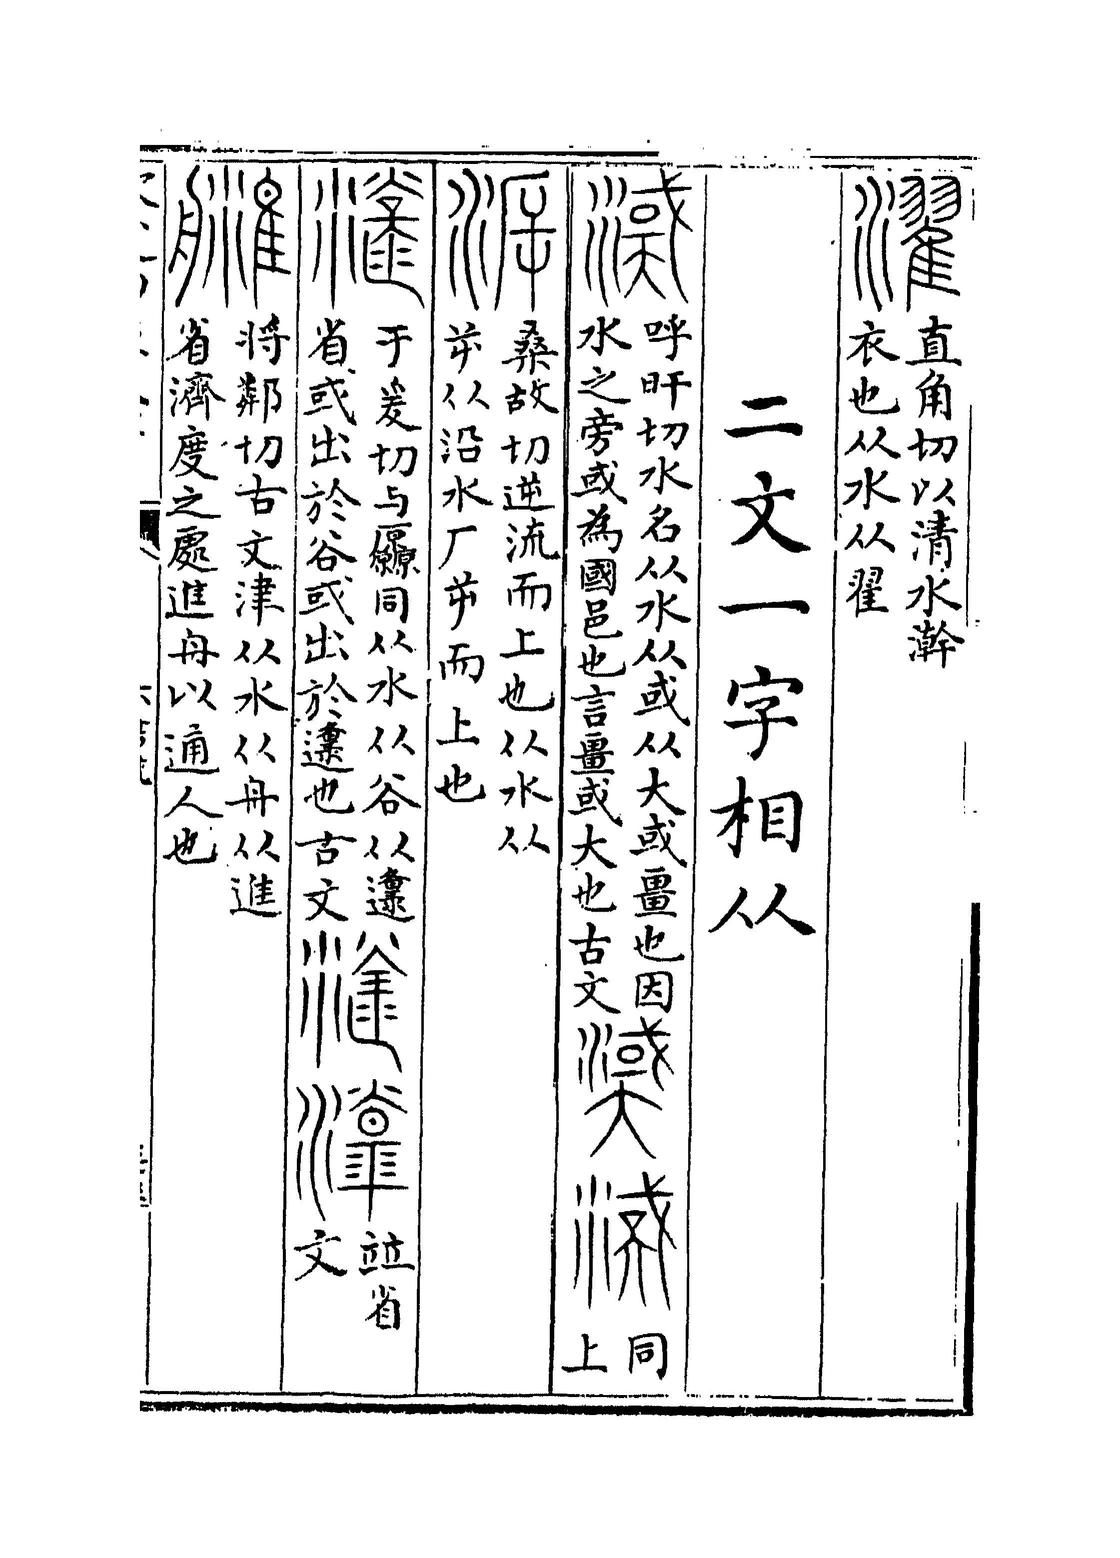 濯
直角切以清水澣
衣也从水从翟
二文一字相从
呼旰切水名从水从或从大或畺也因
水之旁或為國邑也言畺或大也古文
同
上
桑故切逆流而上也从水从
屰从沿水厂屰而上也
于爰切与厵同从水从谷从邍
省或出於谷或出於邍也古文
竝省
文
將鄰切古文津从水从舟从進
省濟度之處進舟以通人也